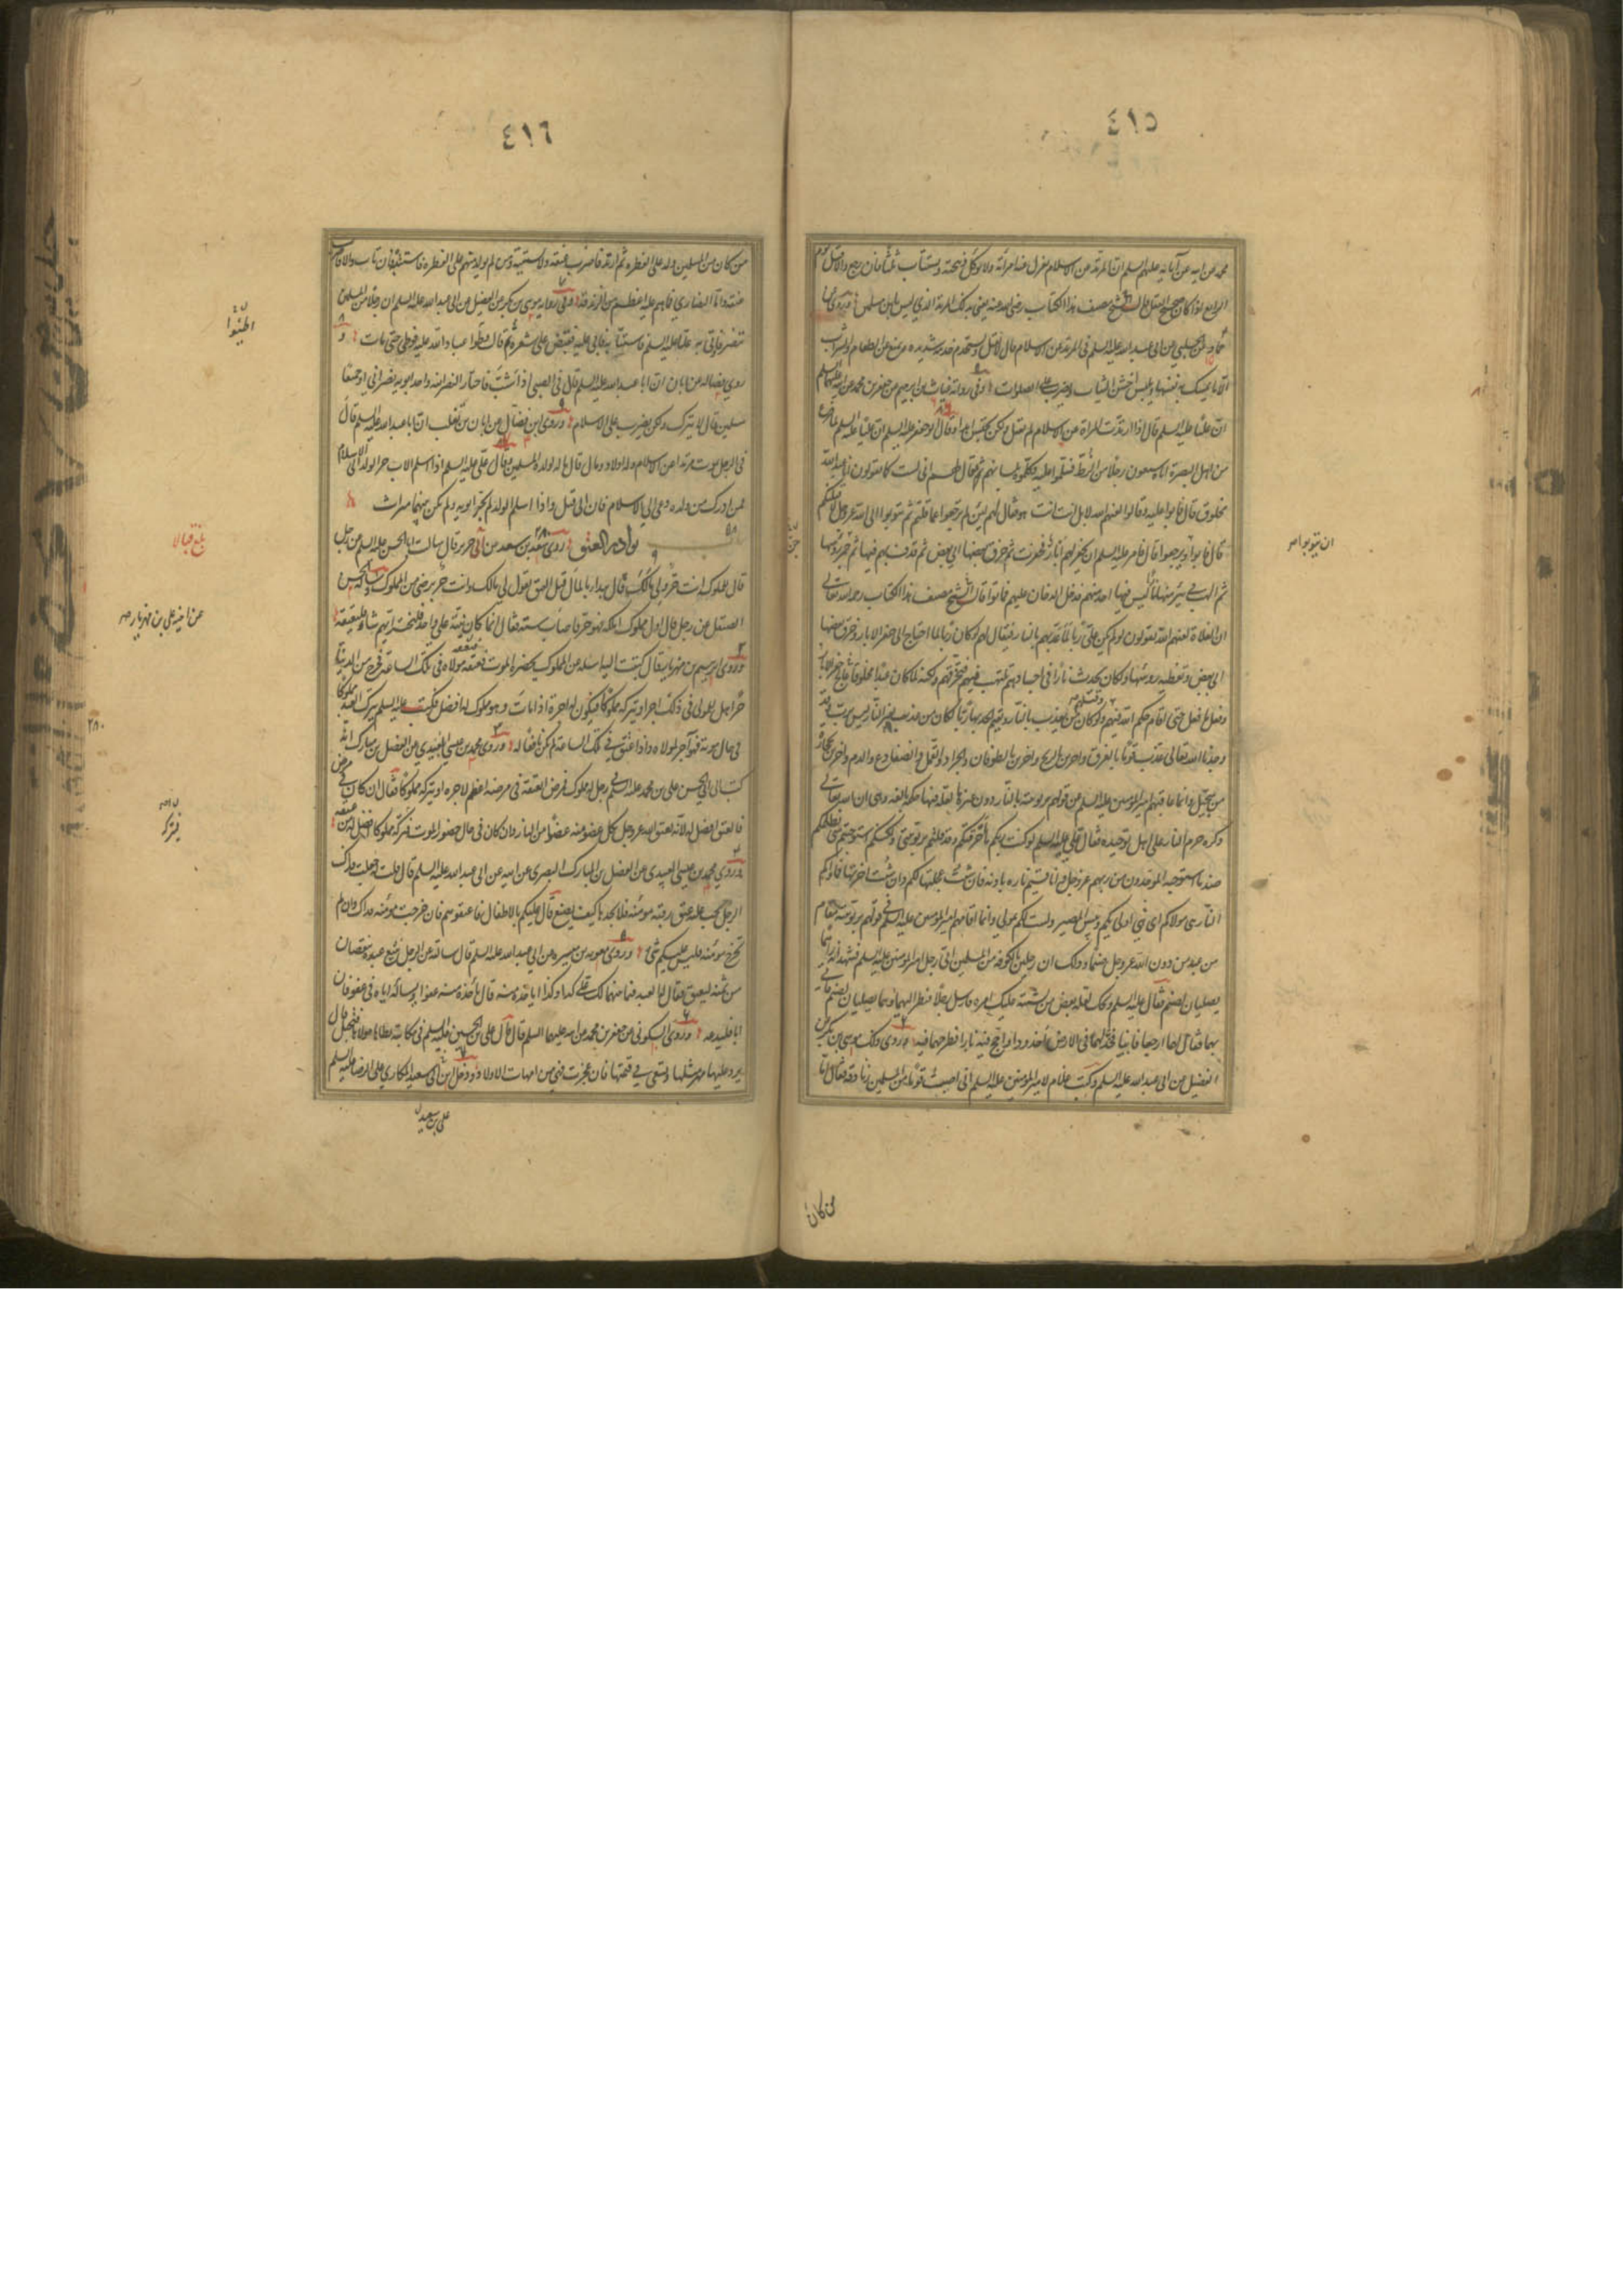 ٤١٥
محمد عن ابيه عن آبائه عليهم السلم ان المرتد عن الاسلام تعزل عنه امرأته ولا توكل ذبيحته ويستتاب ثلثا فان رجع والا قتل يوم
الرابع اذا كان صحيح العقل قال الشيخ مصنف هذا الكتاب رضي الله عنه يعني بذلك المرتد الذي ليس بابن مسلمين وروى
حماد عن الحلبي عن ابي عبد الله عليه السلم في المرتدة عن الاسلام قال لا تقتل وتستخدم خدمة شديدة وتمنع من الطعام والشراب
الا ما يمسك به نفسها وتلبس اخشن الثياب وتضرب على الصلوات وفي رواية غياث بن ابراهيم عن جعفر بن محمد عن ابيه عليهما السلم
ان عليا عليه السلم قال اذا ارتدت المرأة عن الاسلام لم تقتل ولكن تحبس ابدا وقال ابو جعفر عليه السلم ان عليا عليه السلم لما فرغ
من اهل البصرة اتاه سبعون رجلا من الزط فسلموا عليه وكلموه بلسانهم ثم قال لهم اني لست كما تقولون انا عبد الله
مخلوق قال فابوا عليه وقالوا لعنهم الله لا بل انت انت هو فقال لهم لئن لم ترجعوا عما قلتم ثم تتوبوا الى الله عز وجل لاقتلنكم
قال فابوا ويرجعوا قال فامر عليه السلم ان يحفر لهم آبار فحفرت ثم خرق بعضها الى بعض ثم قذف بهم فيها ثم خمر رؤسها
ثم الهب في بئر منها نارا ليس فيها احد منهم فدخل الدخان عليهم فماتوا قال الشيخ مصنف هذا الكتاب رحمه الله تعالى
ان الغلاة لعنهم الله يقولون لو لم يكن علي ربا لما عذبهم بالنار فيقال لهم لو كان ربا لما احتاج الى حفر الابار وخرق بعضها
الى بعض وتغطية رؤسها ولكان يحدث نارا في اجسادهم تلتهب فيهم فتحرقهم ولكنه لما كان عبدا مخلوقا حفر الابار
وفعل ما فعل حتى اقام حكم الله فيهم وقتلهم ولو كان من يعذب بالنار ويقيم الحد بها ربا لكان من عذب بغير النار ليس برب وقد
وجدنا الله تعالى عذب قوما بالغرق واخرين بالريح واخرين بالطوفان والجراد والقمل والضفادع والدم واخرين بحجارة
من سجيل وانما عذبهم امير المؤمنين عليه السلم على قولهم بربوبيته بالنار دون غيرها لعلة فيها حكمة بالغة وهي ان الله تعالى
ذكره حرم النار على اهل توحيده فقال علي عليه السلم لو كنت ربكم ما احرقتكم وقد قلتم بربوبيتي ولكنكم استوجبتم مني بظلمكم
ضد ما استوجبه الموحدون من ربهم عز وجل وانا قسيم ناره باذنه فان شئت عجلتها لكم وان شئت اخرتها فمأويكم
النار هي مولاكم اي هي اولى بكم وبئس المصير ولست لكم بمولى وانما اقامهم امير المؤمنين عليه السلم في قولهم بربوبيته مقام
من عبد من دون الله عز وجل صنما وذلك ان رجلين بالكوفة من المسلمين اتى رجل امير المؤمنين عليه السلم فشهد انه راهما
يصليان لصنم فقال عليه السلم ويحك لعله بعض من تشبه عليك امره فارسل رجلا فنظر اليهما وهما يصليان لصنم فاتى
بهما فقال لهما ارجعا فابيا فخد لهما في الارض اخدودا واجج فيه نارا فطرحهما فيه وروى ذلك موسى بن بكر عن
الفضيل عن ابي عبد الله عليه السلم وكتب غلام لامير المؤمنين عليه السلم اني اصبت قوما من المسلمين زنادقة فقال اما
من كان
ان يتوبوا صح
٤١٦
من كان من المسلمين ولد على الفطرة ثم ارتد فاضرب عنقه ولا تستتبه ومن لم يولد منهم على الفطرة فاستتبه فان تاب والا فاضرب
عنقه واما النصارى فما هم عليه اعظم من الزندقة وفي رواية موسى بن بكر عن الفضيل عن ابي عبد الله عليه السلم ان رجلا من المسلمين
تنصر فاتي به عليا عليه السلم فاستتابه فابى عليه فقبض على شعره ثم قال طؤا عباد الله عليه فوطئ حتى مات و
روى فضالة عن ابان ان ابا عبد الله عليه السلم قال في الصبي اذا شب فاختار النصرانية واحد ابويه نصراني او جميعا
مسلمين قال لا يترك ولكن يضرب على الاسلام وروى ابن فضال عن ابان بن تغلب ان ابا عبد الله عليه السلم قال
في الرجل يموت مرتدا عن الاسلام وله اولاد ومال قال ماله لولده المسلمين وقال علي عليه السلم اذا اسلم الاب جر الولد الى الاسلام
فمن ادرك من ولده دعي الى الاسلام فان ابى قتل واذا اسلم الولد لم يجر ابويه ولم يكن بينهما ميراث
نوادر العتق روى سعد بن سعد عن ابي جرير قال سالت ابا الحسن عليه السلم عن رجل
قال لمملوكه انت حر ولي مالك قال يبدا بالمال قبل العتق يقول لي مالك وانت حر برضى من المملوك وسأله الحسن
الصيقل عن رجل قال اول مملوك املكه فهو حر فاصاب ستة فقال انما كان نيته على واحد فليختر ايهم شاء فليعتقه
وروى ابرهيم بن مهزيار قال كتبت اليه اسئله عن المملوك يحضره الموت فيعتقه مولاه في تلك الساعة فيخرج من الدنيا
حرا هل للمولى في ذلك اجر او يتركه مملوكا فيكون له اجره اذا مات وهو مملوك له افضل فكتب عليه السلم يترك العبد مملوكا
في حال موته فهو اجر لمولاه وهذا عتق في تلك الساعة لم يكن نافعا له وروى محمد بن عيسى العبيدي عن الفضل بن المبارك انه
كتب الى ابي الحسن علي بن محمد عليه السلم في رجل له مملوك فمرض ايعتقه في مرضه اعظم لاجره او يتركه مملوكا فقال ان كان في مرض
فالعتق افضل له لانه يعتق الله عز وجل بكل عضو منه عضوا من النار وان كان في حال حضور الموت فيتركه مملوكا افضل له من عتقه
وروى محمد بن عيسى العبيدي عن الفضل بن المبارك البصري عن ابيه عن ابي عبد الله عليه السلم قال قلت له جعلت فداك
الرجل يجب عليه عتق رقبة مؤمنة فلا يجدها كيف يصنع قال عليكم بالاطفال فاعتقوهم فان خرجت مؤمنة فذاك وان لم
تخرج مؤمنة فليس عليكم شئ وروى معوية بن ميسرة عن ابي عبد الله عليه السلم قال سالته عن الرجل يبيع عبده بنقصان
من ثمنه ليعتق فقال له العبد فيما بينهما لك علي كذا وكذا اياخذه منه قال ياخذه منه عفوا ويسأله اياه في عفو فان
ابا فليدعه وروى السكوني عن جعفر بن محمد عن ابيه عليهما السلم قال قال علي بن الحسين عليه السلم في مكاتبة يطأها مولاها فتحمل قال
يرد عليها مهر مثلها وتسعى في قيمتها فان عجزت فهي من امهات الاولاد ودخل ابن ابي سعيد المكاري على الرضا عليه السلم
بلغ قبالا
عن اخيه علي بن مهزيار صح
فيتركه